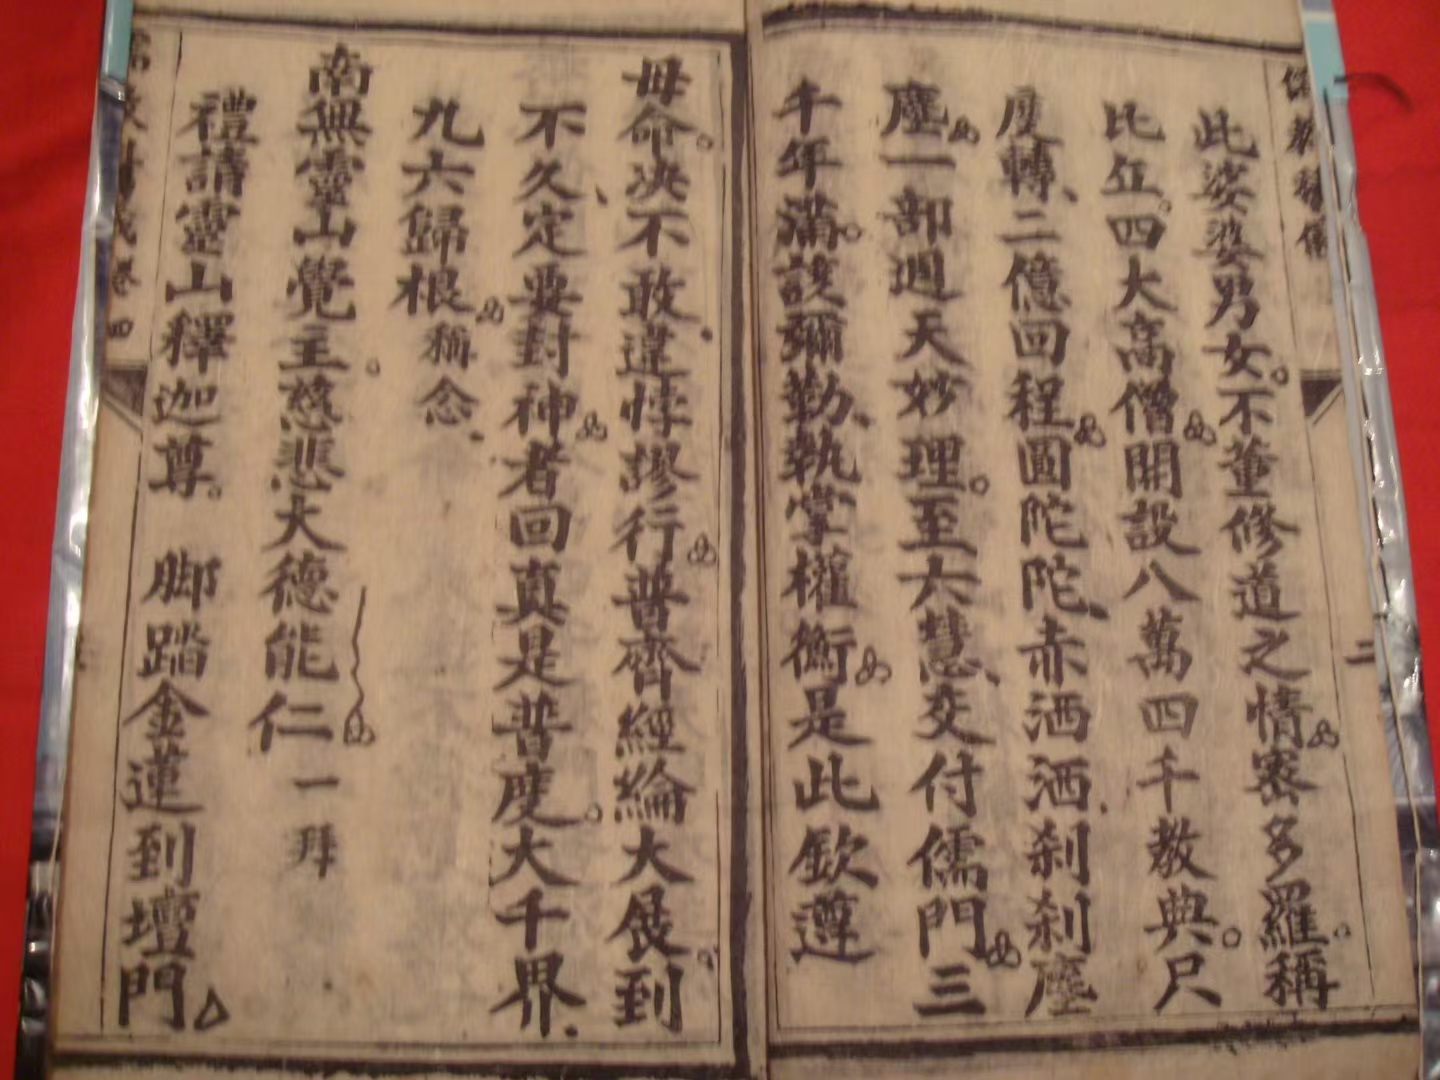 此娑婆男女不董修道之情密多羅稱
比丘四大高僧開設八萬四千教典尺
度轉二億回程圓陀陀赤洒洒刹刹塵
塵一部週天妙理至六慧交付儒門三
千年滿該彌勒執掌權衡是此欽遵
毋命决不敢違悖謬行普齊經綸大展到
不久定要封神者回真是普度大千界
九六歸根稱念
南無靈山覺主慈悲大德能仁一拜
禮請靈山釋迦尊 脚踏金蓮到壇門
四
二